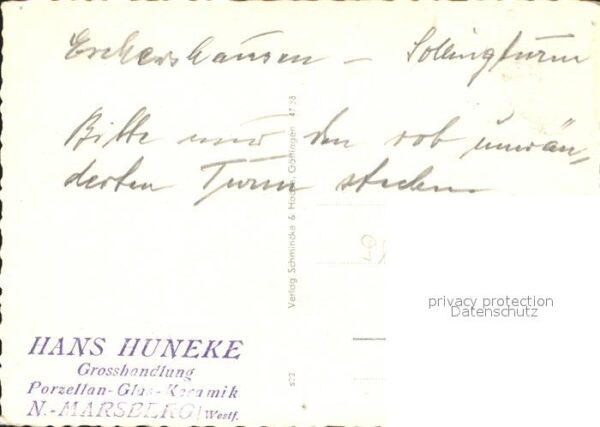 Eschershausen - Sollingturm
Bitte nur den rot umrän-
derten Turm stechen
Verlag Schmincke & Hocke, Göttingen 4738
922
HANS HUNEKE
Grosshandlung
Porzellan-Glas-Keramik
N.-MARSBERG/Westf.
privacy protection
Datenschutz